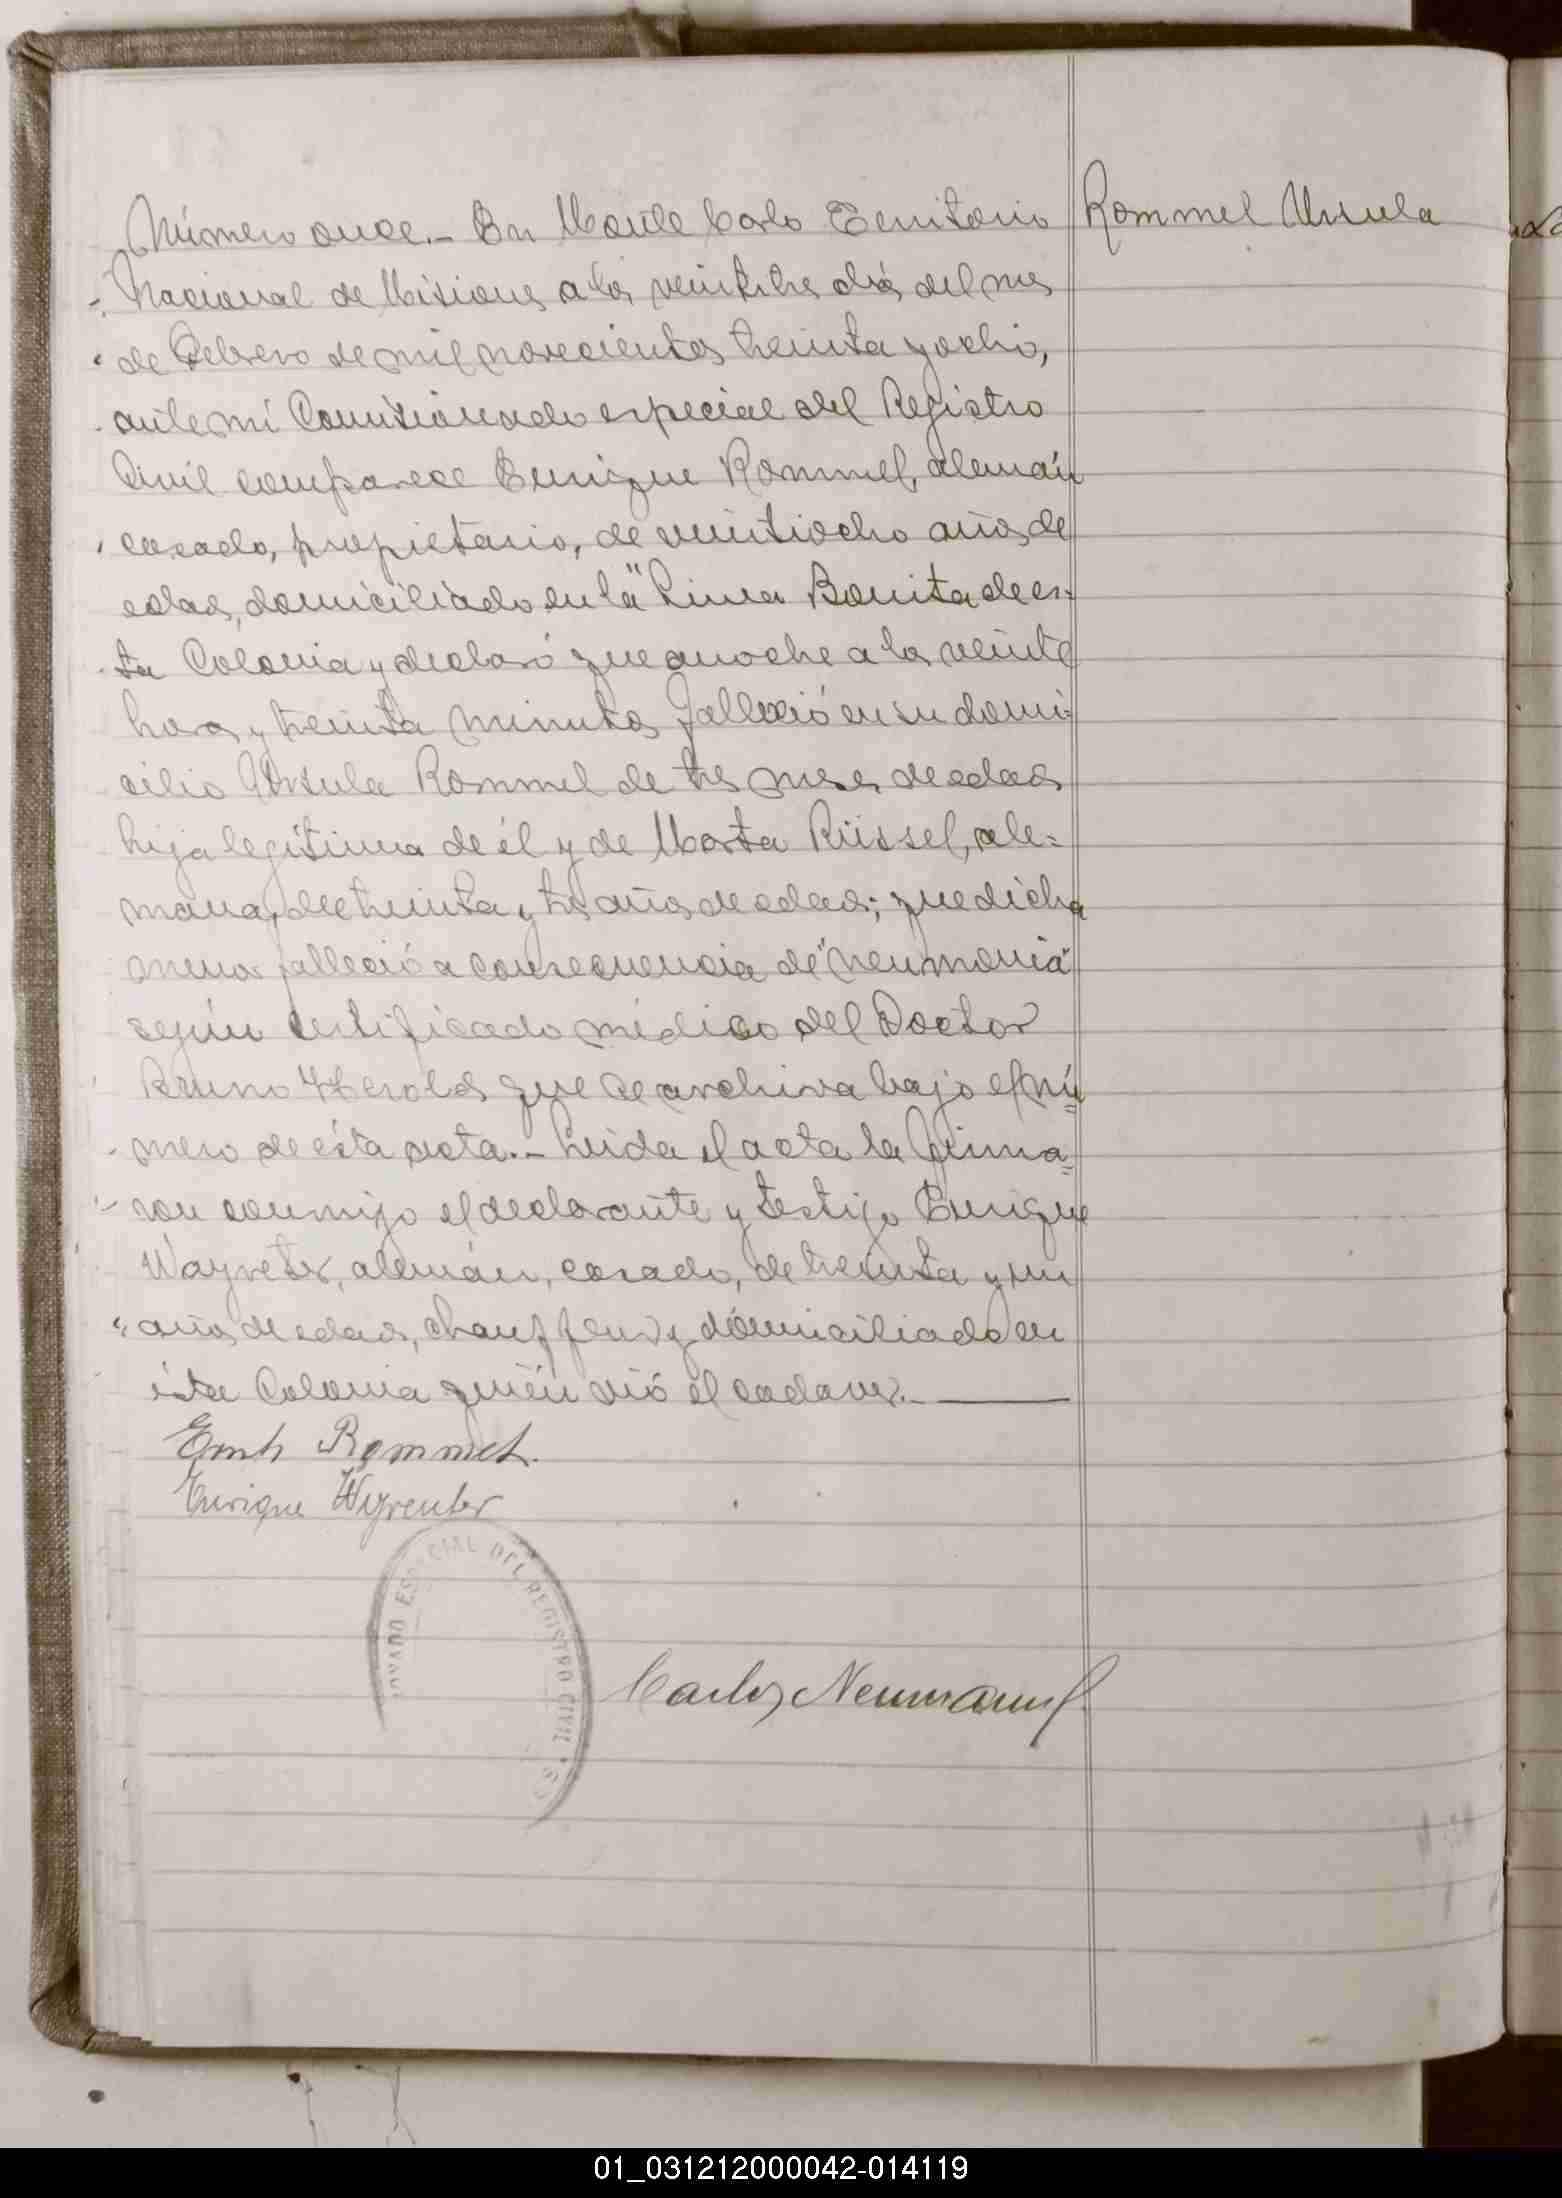 Número once.- En Monte Carlo Territorio
Rommel Ursula
Nacional de Misiones a los veintitres días del mes
de Febrero de mil novecientos treinta y ocho,
ante mí Comisionado especial del Registro
Civil comparece Enrique Rommel, alemán
casado, propietario, de veintiocho años de
edad, domiciliado en la "Linea Bonita de es-
ta Colonia y declaró que anoche a las veinte
horas y treinta minutos falleció en su domi=
cilio Ursula Rommel de tres meses de edad
hija legítima de él y de Marta Rüssel, ale=
mana, de treinta y tres años de edad; que dicha
menor falleció a consecuencia de "neumonia"
según certificado médico del Doctor
Bruno Herold que se archiva bajo el nú=
mero de ésta acta.- Leida el acta la firma=
ron conmigo el declarante y testigo Enrique
Wayreter, alemán, casado, de treinta y un
años de edad, chauffeur y domiciliado en
ésta Colonia quién vió el cadaver.-
Rommel.
Enrique Weyreuter
ESPECIAL DEL REGISTRO CIVIL
Carlos Neumann
01_031212000042-014119